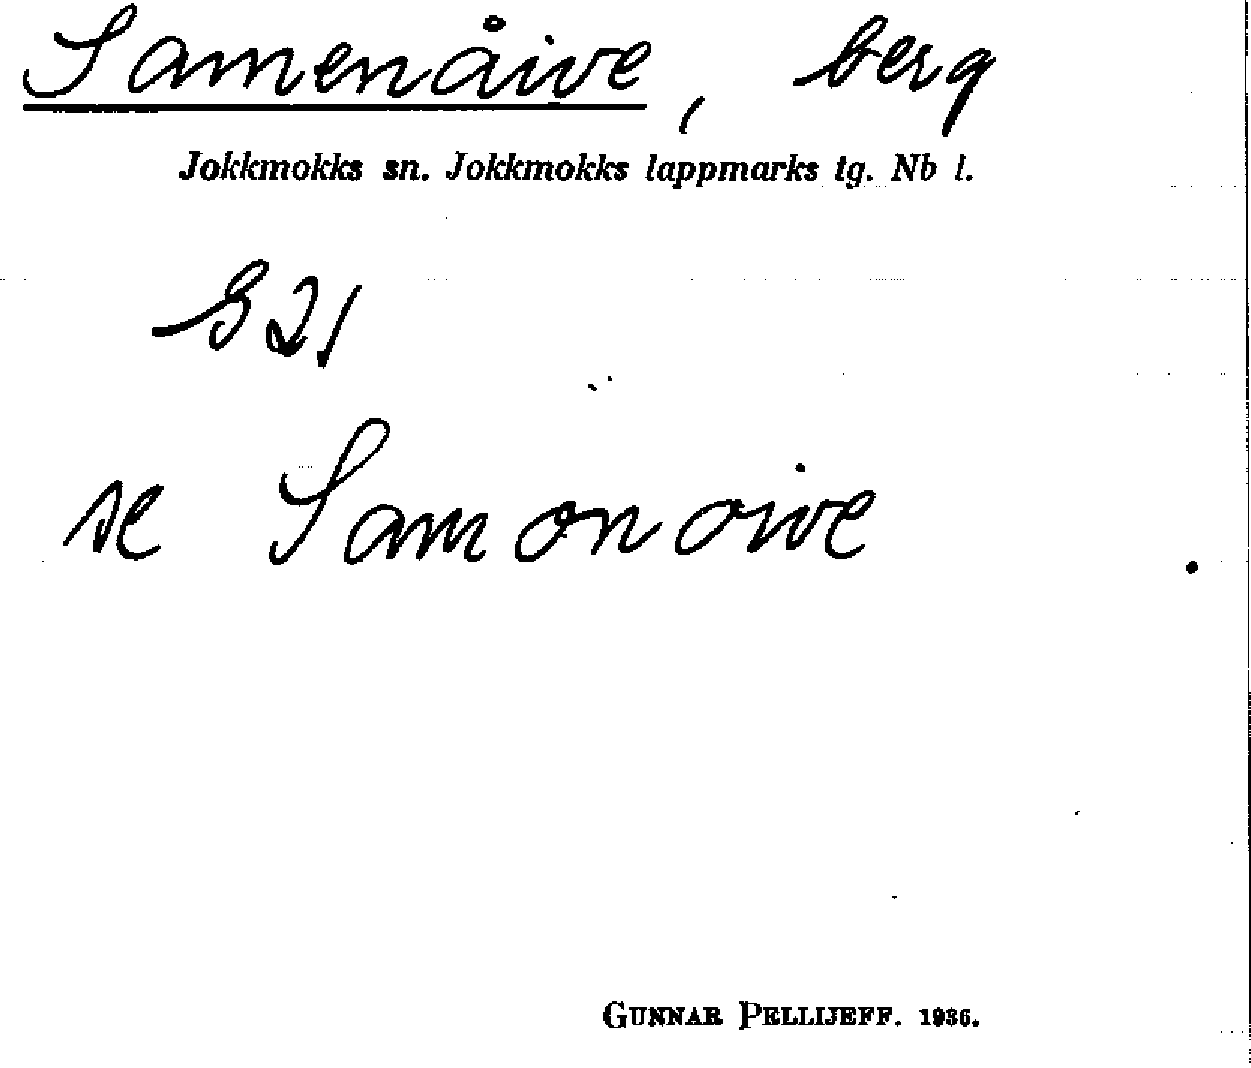 Samenåive, berg
Jokkmokks sn. Jokkmokks lappmarks tg. Nb l.
S 21
se Samonoive
GUNNAR PELLIJEFF. 1936.